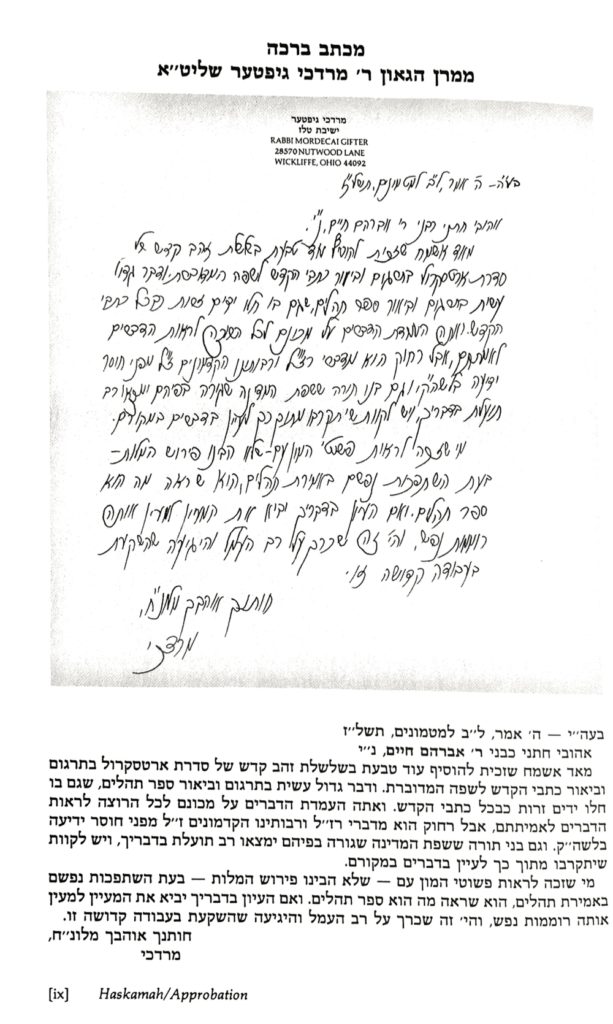 מכתב ברכה
ממרן הגאון ר׳ מרדכי גיפטער שליט״א
מרדכי גיפטער
ישיבת טלז
RABBI MORDECAI GIFTER
28570 NUTWOOD LANE
WICKLIFFE, OHIO 44092
בעה״י – ה׳ אמר, ל״ב למטמונים, תשל״ז
אהובי חתני כבני ר׳ אברהם חיים, נ״י
מאד אשמח שזכית להוסיף עוד טבעת בשלשלת זהב קדש של
סדרת ארטסקרול בתרגום וביאור כתבי הקדש לשפה המדוברת. ודבר גדול
עשית בתרגום וביאור ספר תהלים, שגם בו חלו ידים זרות כבכל כתבי
הקדש. ואתה העמדת הדברים על מכונם לכל הרוצה לראות הדברים
לאמיתתם, אבל רחוק הוא מדברי רז״ל ורבותינו הקדמונים ז״ל מפני חוסר
ידיעה בלשה״ק. וגם בני תורה ששפת המדינה שגורה בפיהם ימצאו רב
תועלת בדבריך, ויש לקוות שיתקרבו מתוך כך לעיין בדברים במקורם.
מי שזכה לראות פשוטי המון עם – שלא הבינו פירוש המלות –
בעת השתפכות נפשם באמירת תהלים, הוא שראה מה הוא
ספר תהלים. ואם העיון בדבריך יביא את המעיין למעין אותה
רוממות נפש, והי׳ זה שכרך על רב העמל והיגיעה שהשקעת
בעבודה קדושה זו.
חותנך אוהבך מלונ״ח,
מרדכי
בעה״י — ה׳ אמר, ל״ב למטמונים, תשל״ז
אהובי חתני כבני ר׳ אברהם חיים, נ״י
מאד אשמח שזכית להוסיף עוד טבעת בשלשלת זהב קדש של סדרת ארטסקרול בתרגום
וביאור כתבי הקדש לשפה המדוברת. ודבר גדול עשית בתרגום וביאור ספר תהלים, שגם בו
חלו ידים זרות כבכל כתבי הקדש. ואתה העמדת הדברים על מכונם לכל הרוצה לראות
הדברים לאמיתתם, אבל רחוק הוא מדברי רז״ל ורבותינו הקדמונים ז״ל מפני חוסר ידיעה
בלשה״ק. וגם בני תורה ששפת המדינה שגורה בפיהם ימצאו רב תועלת בדבריך, ויש לקוות
שיתקרבו מתוך כך לעיין בדברים במקורם.
מי שזכה לראות פשוטי המון עם — שלא הבינו פירוש המלות — בעת השתפכות נפשם
באמירת תהלים, הוא שראה מה הוא ספר תהלים. ואם העיון בדבריך יביא את המעיין למעין
אותה רוממות נפש, והי׳ זה שכרך על רב העמל והיגיעה שהשקעת בעבודה קדושה זו.
חותנך אוהבך מלונ״ח,
מרדכי
[ix] Haskamah/Approbation